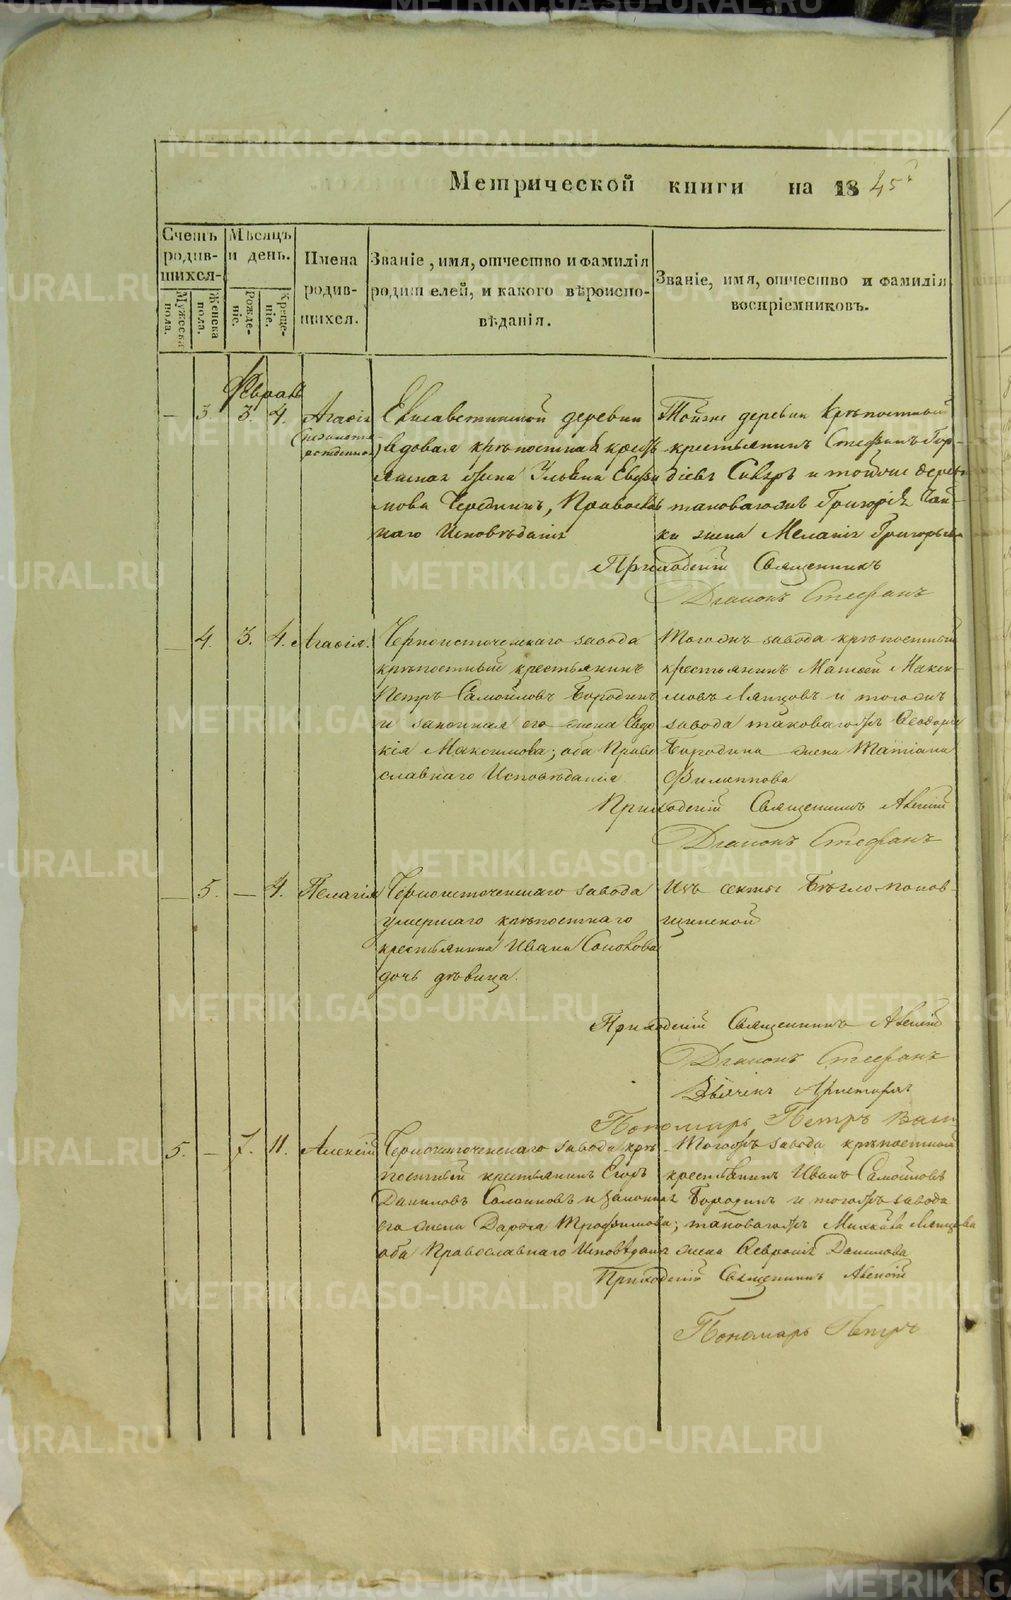 METRIKI.GASO-URAL.RU
Метрической книги на 1845
Счетъ родив-шихся
Мѣсяцъ и день.
Имена родив-шихся.
Званіе, имя, отчество и фамилія родителей, и какого вѣроиспо-вѣданія.
Званіе, имя, отчество и фамилія воспріемниковъ.
Мужеска пола.
Женска пола.
Рожде-ніе.
Креще-ніе.
Февраль
— 3. 3 4. Агафія
Елисаветинской деревни
вдовая крѣпостная
жена Ульяна
Чередникъ, Православ
наго Исповѣданія
Тойже деревни Крѣпостный
крестьянинъ Стефанъ Гор-
и тойже дерев
таковагожъ Григорія
жена Меланія Григорьева
Приходскій Священникъ
Діаконъ Стефанъ
— 4. 3. 4. Агафія.
Черноисточенскаго завода
крѣпостный крестьянинъ
Петръ Самойловъ Бородинъ
и законная его жена Евдо
кія Максимова; оба Право
славнаго Исповѣданія
Тогожъ завода крѣпостный
крестьянинъ Матвей Макси-
мовъ Ляпцовъ и тогожъ
завода таковагожъ Ѳеодора
Бородина жена Татіана
Филиппова
Приходскій Священникъ Алексій
Діаконъ Стефанъ
— 5. — 4. Пелагія
Черноисточенскаго завода
умершаго крѣпостнаго
крестьянина Ивана Солокова
дочь дѣвица.
Изъ секты Бѣгло-попов-
щинской
Приходскій Священникъ Алексій
Діаконъ Стефанъ
Дьячекъ
Пономарь Петръ
5. — 7. 11. Алексій
Черноисточенскаго завода крѣ
постный крестьянинъ Егоръ
Даниловъ и законная
его жена Дарья Трофимова;
оба Православнаго Исповѣдан
Тогожъ завода крѣпостной
крестьянинъ Иванъ Самойловъ
Бородинъ и тогожъ завода
таковагожъ Михайла Ляпцова
жена Ѳевронія Данилова
Приходскій Священникъ Алексій
Пономарь Петръ